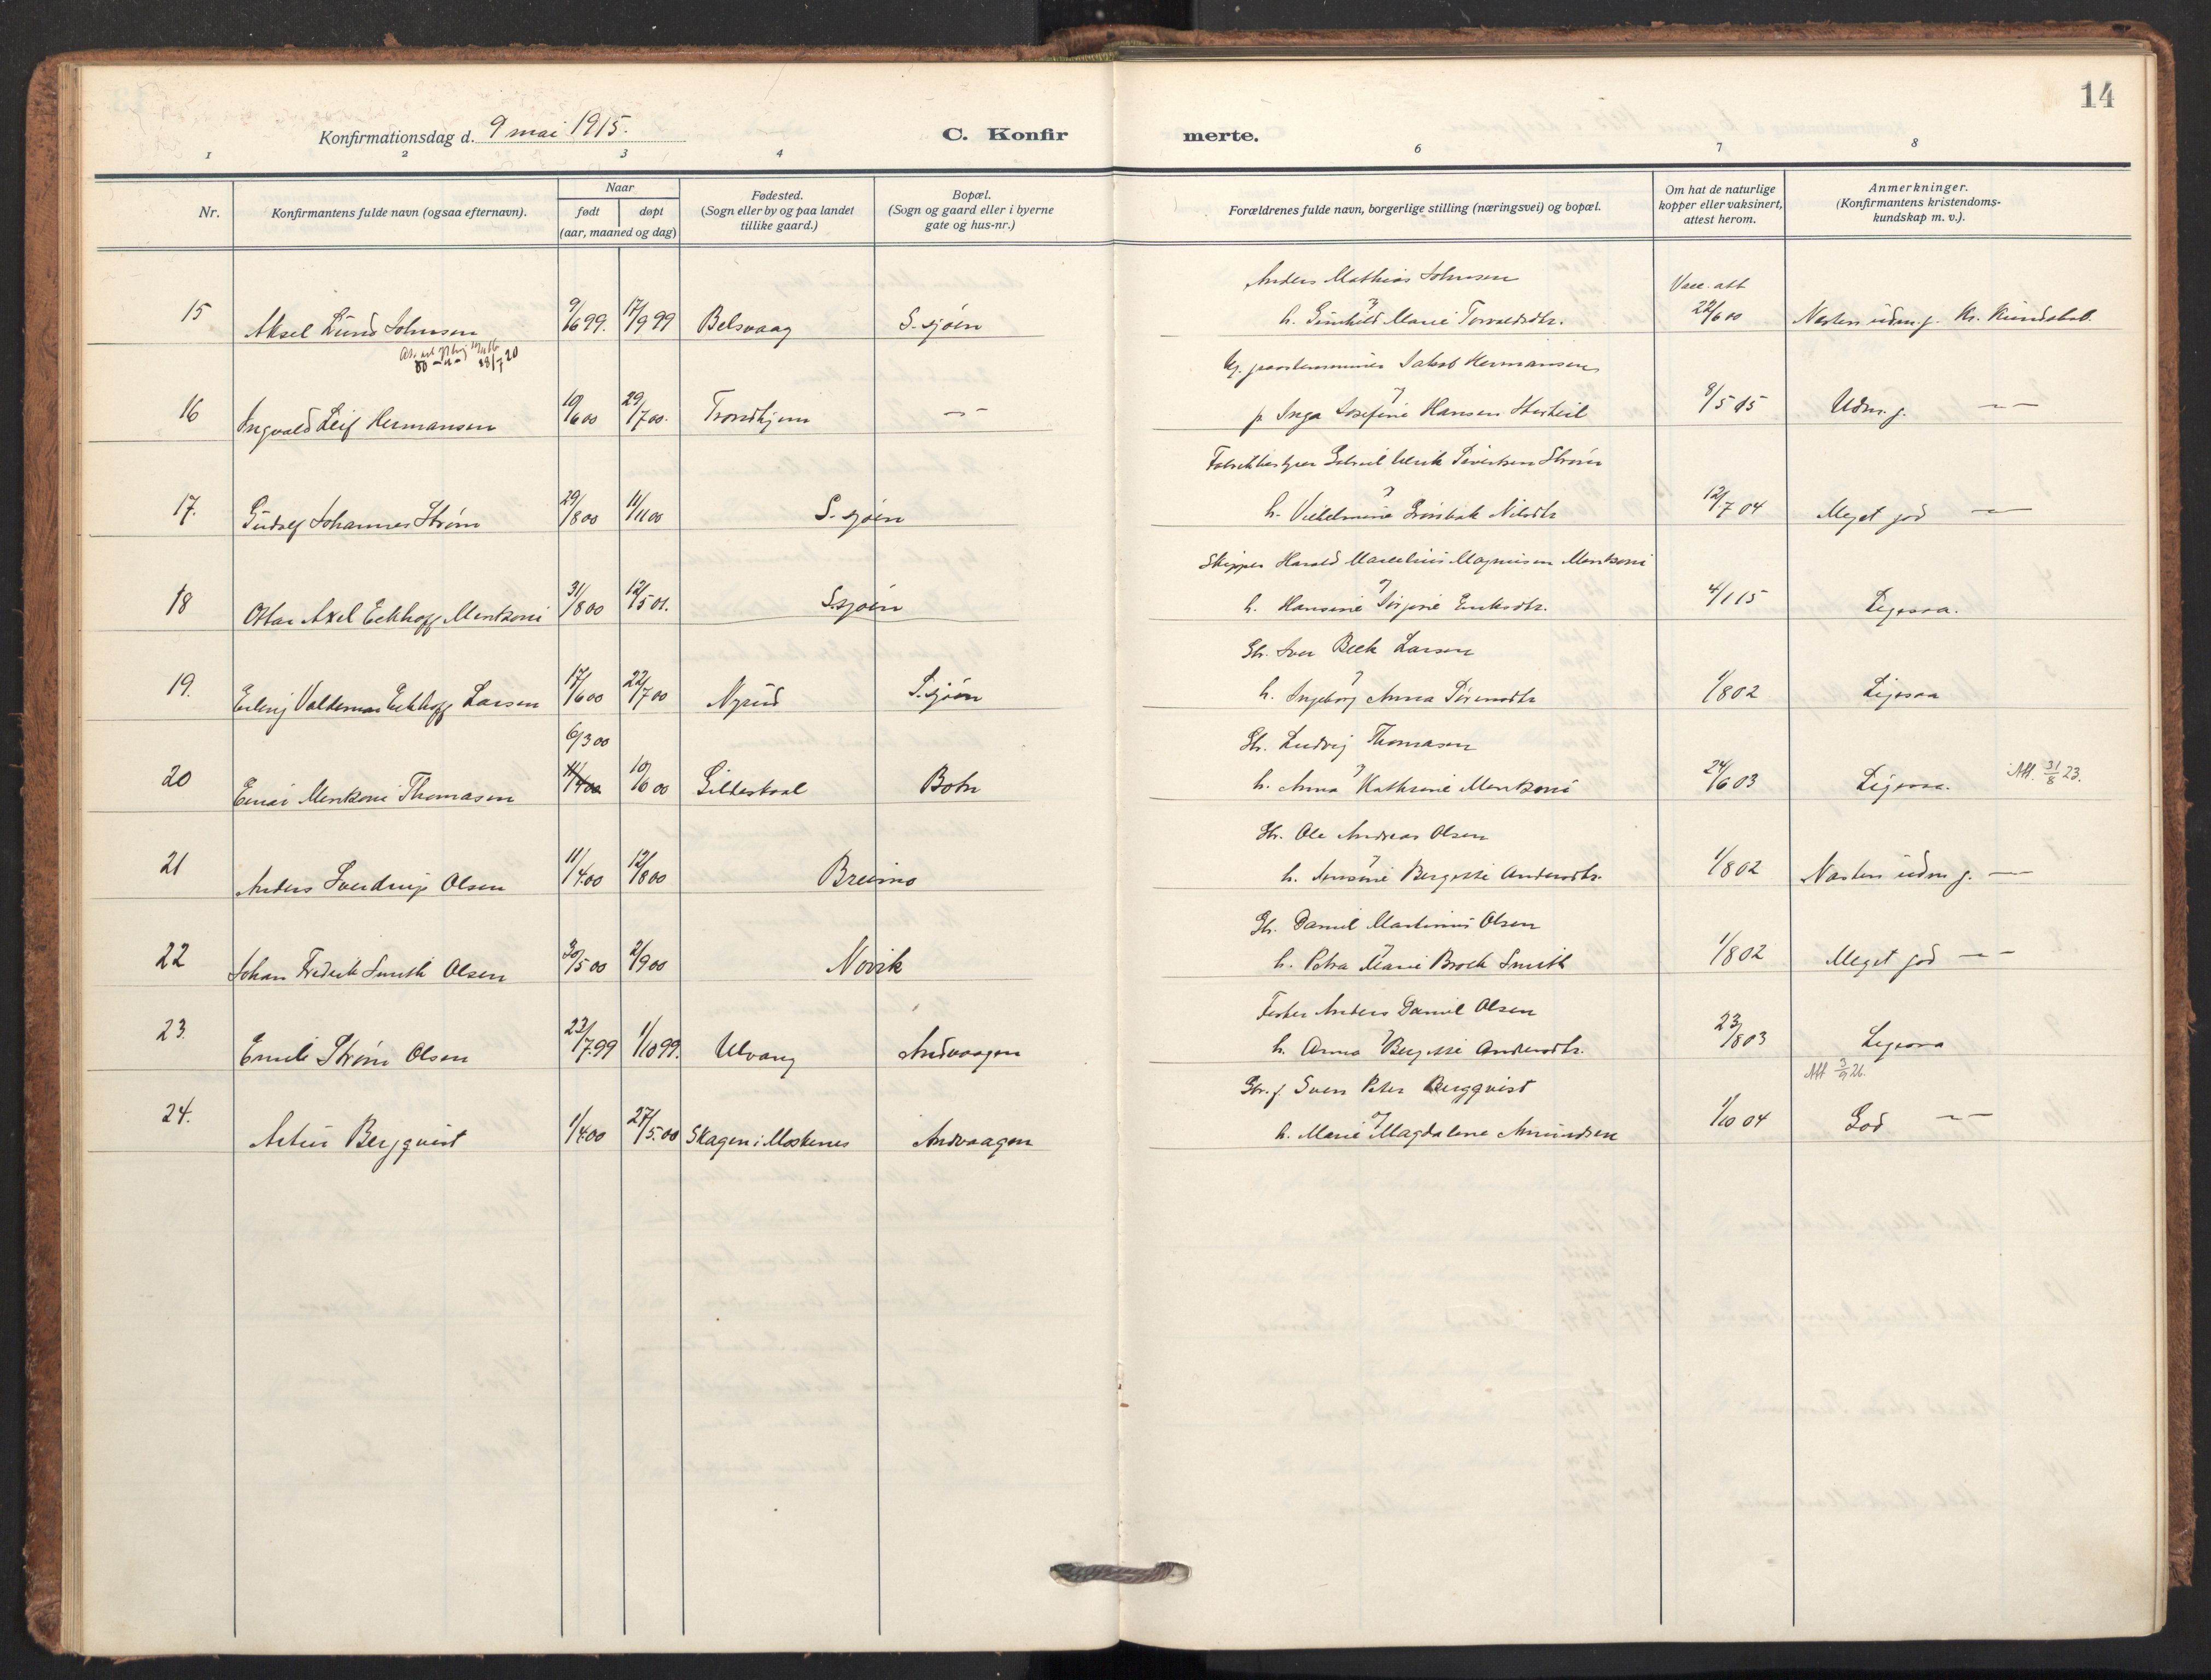 14
Konfirmationsdag d. 9 mai 1915.
C. Konfir merte.
1 2 3 4 6 7 8
Nr.
Konfirmantens fulde navn (ogsaa efternavn).
Naar
født døpt
(aar, maaned og dag)
Fødested.
(Sogn eller by og paa landet
tillike gaard.)
Bopæl.
(Sogn og gaard eller i byerne
gate og hus-nr.)
Forældrenes fulde navn, borgerlige stilling (næringsvei) og bopæl.
Om hat de naturlige
kopper eller vaksinert,
attest herom.
Anmerkninger.
(Konfirmantens kristendoms-
kundskap m. v.).
Anders Mathias Johnsen Vacc. att
15 Aksel Lund Johnsen 9/6 99. 17/9 99 Belsvaag S. sjøen h. Gunhild Marie Torvaldsdtr. 22/6 00 Næsten udm. g. Kr. Kundskab.
28/7 20
Jakob Hermansen
16 Ingvald Leif Hermansen 10/6 00 29/7 00. Trondhjem -"- p Inga Josefine Hansen 8/5 15 Udm. g. -"-
Gabriel Ulrik Sivertsen Strøm
17. Gudolf Johannes Strøm 29/8 00 11/11 00 S. sjøen h. Vilhelmine Grønbek Nilsdtr 12/7 04 Meget god -"-
Skipper Harald Marselius Magnusen Menkoni
18 Ottar Axel Eckhoff Menkoni 31/8 00 12/5 01. S.sjøen h. Hansine Jørgine Eriksdtr. 4/1 15 Ligesaa.
Gbr. Iver Beck Larsen
19. Erling Valdemar Eckhoff Larsen 17/6 00 22/7 00 Nyrud S.sjøen h. Ingeborg Anna Sørensdtr 1/8 02 Ligesaa
6/3 00
Gbr. Ludvig Thomasen
20 Einar Menkoni Thomasen 11/4 00 10/6 00 Gildeskaal Botn h. Anna Kathrine Menkoni 24/6 03 Ligesaa. Att. 31/8 23.
Gbr. Ole Andreas Olsen
21 Anders Sverdrup Olsen 11/4 00 12/8 00 Breimo h. Bergitte Andersdtr. 1/8 02 Næsten udm g. -"-
Gbr. Daniel Martinus Olsen
22 Johan Fredrik Smith Olsen 30/5 00 2/9 00 Novik h. Petra Marie Brock Smith 1/8 02 Meget god -"-
Fester Anders Daniel Olsen
23. Emil Strøm Olsen 23/7 99 1/10 99. Ulvang Andvaagen h. Anna Bergitte Andersdtr. 23/8 03 Ligesaa
Att 3/9 26.
Gbr. f. Sven Peter Bergqvist
24. Artur Bergqvist 1/4 00 27/5 00 Skagen i Moskenes Andvaagen h. Marie Magdalene Amundsen 1/10 04 God -"-